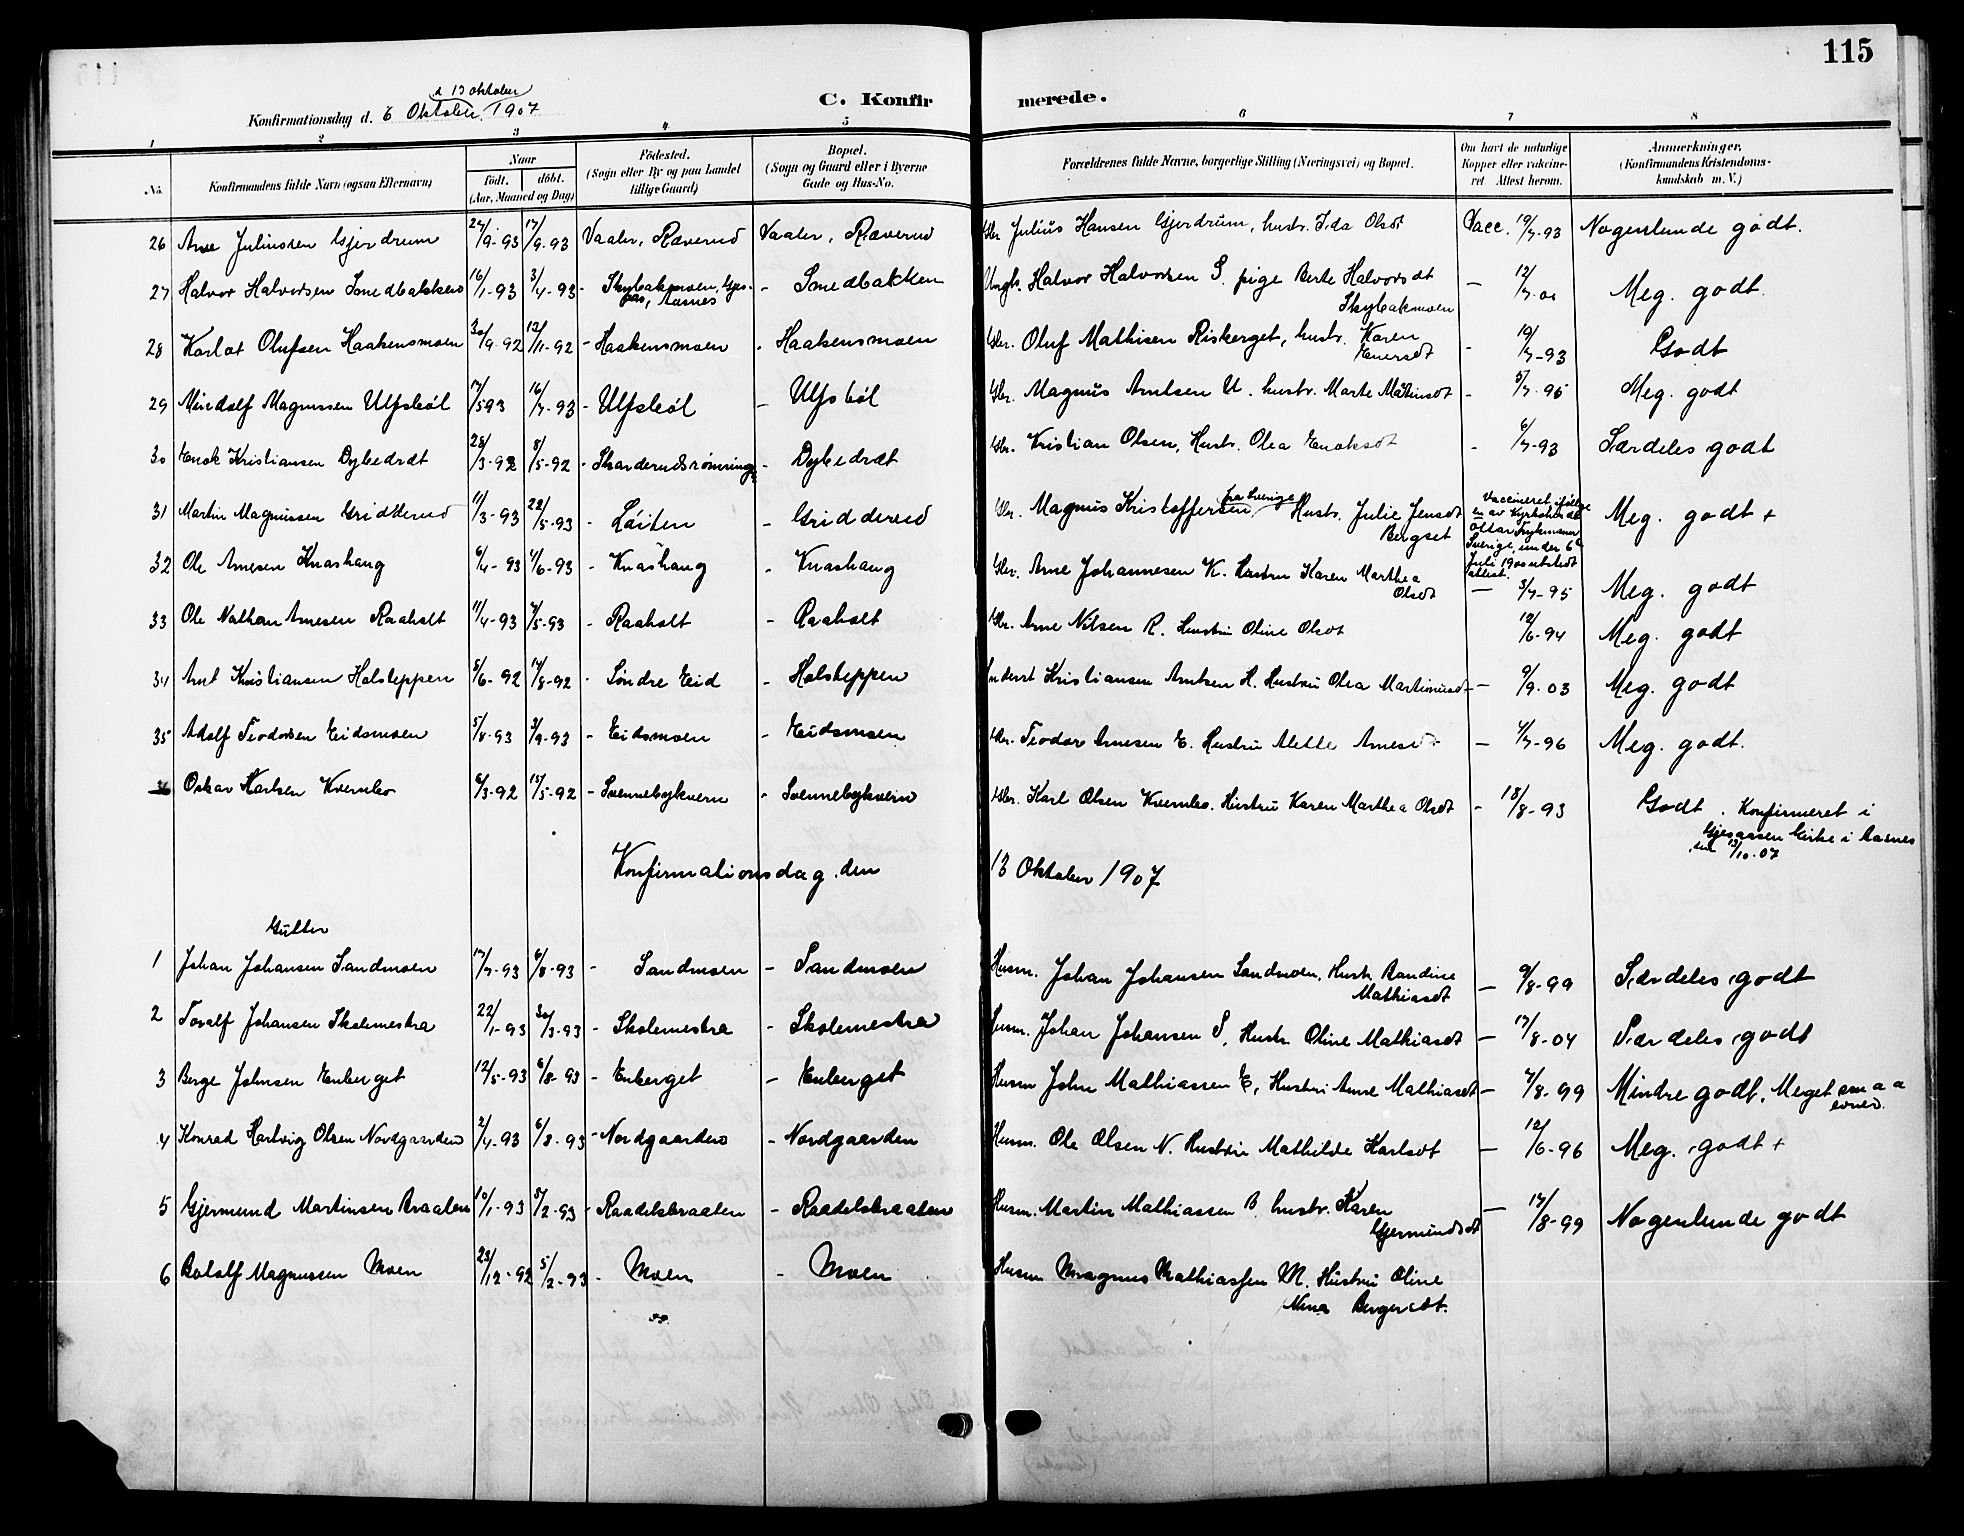 115
& 13 oktober
Konfirmationsdag d. 6 Oktober 1907
C. Konfirmerede.
1 2 3 4 5 6 7 8
No. Konfirmandens fulde Navn (ogsaa Efternavn) Naar födt. döbt. (Aar, Maaned og Dag) Födested. (Sogn eller By og paa Landet tillige Gaard) Bopæl. (Sogn og Gaard eller i Byerne Gade og Hus-No. Forældrenes fulde Navne, borgerlige Stilling (Næringsvei) og Bopæl. Om havt de naturlige Kopper eller vaccineret Attest herom. Anmærkninger, (Konfirmandens Kristendomskundskab m. V.)
26 Arne Juliussen Gjerdrum 24/9-93 17/9-93 Vaaler, Ræverud Vaaler, Ræverud Gbr. Julius Hansen Gjerdrum, hustr. Ida Olsdt Vacc. 19/7-93 Nogenlunde godt.
27 Halvor Halvorsen Smedbakken 16/1-93 3/4-93 - Skybakmoen, Aasnes - Smedbakken Ungk. Halvor Halvorsen S. pige Berte Halvorsdt Skybakmoen - 12/7-00 Meg. godt.
28 Karlot Olufsen Haakensmoen 30/9-92 13/11-92 - Haakensmoen - Haakensmoen Gbr. Oluf Mathisen Risberget, hustr. Karen Enersdt - 19/7-93 Godt
29 Mindolf Magnussen Ulfsböl 17/5 93 16/7-93 - Ulfsböl - Ulfsböl Gbr. Magnus Arntsen U. hustr. Marte Martinsdt - 5/7-95 Meg. godt
30 Enok Kristiansen Dybedræt 28/3-92 8/5-92 - Skarderudsrömning - Dybedræt Gbr. Kristian Olsen, Hustr. Olea Enoksdt - 6/7-93 Særdeles godt
31 Martin Magnussen Gridderud 11/3-93 22/5-93 - Löiten - Gridderud Gbr. Magnus Kristoffersen fra Sverige Hustr. Julie Jensdt Bergset Vaccineret ifölge Sverige, under 6te Juli 1900 utstedt attest. Meg. godt +
32 Ole Arnesen Knashaug 6/4-93 4/6-93 - Knashaug - Knashaug Gbr. Arne Johannesen K. Hustru Karen Marthea Olsdt - 3/7-95 Meg. godt
33 Ole Nathan Arnesen Raaholt 11/4-93 7/5-93 - Raaholt - Raaholt Gbr. Arne Nilsen R. Hustru Oline Olsdt 12/6-94 Meg. godt
34 Arnt Kristiansen Holsteppen 5/6-92 14/8-92 - Söndre Eid - Holsteppen Inderst Kristiansen Arntsen H. Hustru Olea Martinusdt - 9/9-03 Meg. godt
35 Adolf Teodorsen Eidsmoen 5/8-93 3/9-93 - Eidsmoen - Eidsmoen Gbr. Teodor Arnesen E. Hustru Alette Arnesdt - 4/7-96 Meg. godt.
36 Oskar Karlsen Kvernbo 6/3-92 15/5-92 - Svennebykvern - Svennebykvern Gbr. Karl Olsen Kvernbo. Hustru Karen Marthea Olsdt - 18/8-93 Godt. Konfirmeret i Gjesaasen kirke i Aasnes 13/10-07
Konfirmationsdag den 13 Oktober 1907
Gutter
1 Johan Johansen Sandmoen 17/7-93 6/8-93 - Sandmoen - Sandmoen Husm. Johan Johansen Sandmoen, Hustr. Randine Mathiasdt - 9/8-99 Særdeles godt
2 Toralf Johansen Skolemestra 22/1-93 30/3-93 - Skolemestra - Skolemestra Husm. Johan Johansen S, Hustr. Oline Mathiasdt - 17/8-04 Særdeles godt
3 Berge Johnsen Enberget 12/5-93 6/8-93 - Enberget - Enberget Husm John Mathiassen E, Hustru Anne Mathiasdt - 7/8-99 Mindre godt. Meget smaa evner.
4 Konrad Hartvig Olsen Nordgaarden 2/4-93 6/8-93 - Nordgaarden - Nordgaarden Husm. Ole Olsen N. Hustru Mathilde Karlsdt - 12/6-96 Meg. godt +
5 Gjermund Martinsen Braaten 10/1-93 5/2-93 - Raadelsbraaten - Raadelsbraaten Husm. Martin Mathiassen B. hustr. Karen Gjermundsdt - 17/8-99 Nogenlunde godt
6 Bolalf Magnussen Moen 23/12-92 5/2-93 - Moen - Moen Husm Magnus Mathiassen M. Hustru Oline Nina Bergersdt.